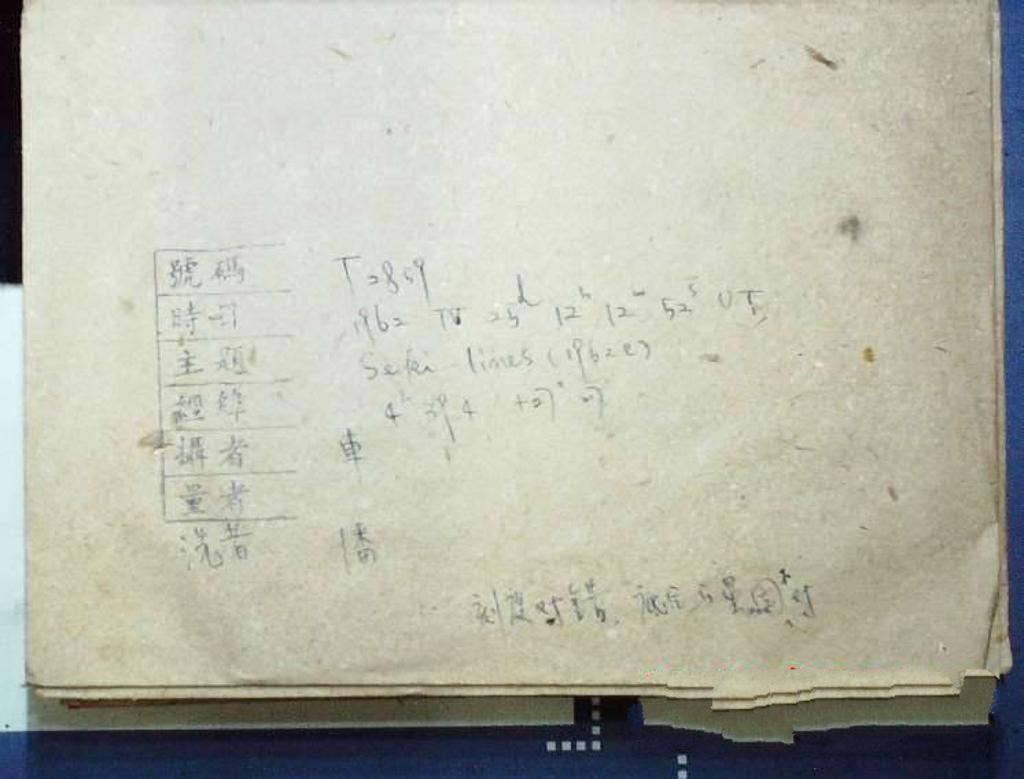 號碼 T2859
時日 1962 IV 25d 12h 12m 52s UT
主題 Seki-lines (1962c)
經緯 4h 39 4 +27° 27
攝者 車
量者
洗者 潘
刻度对錯, 星图不对